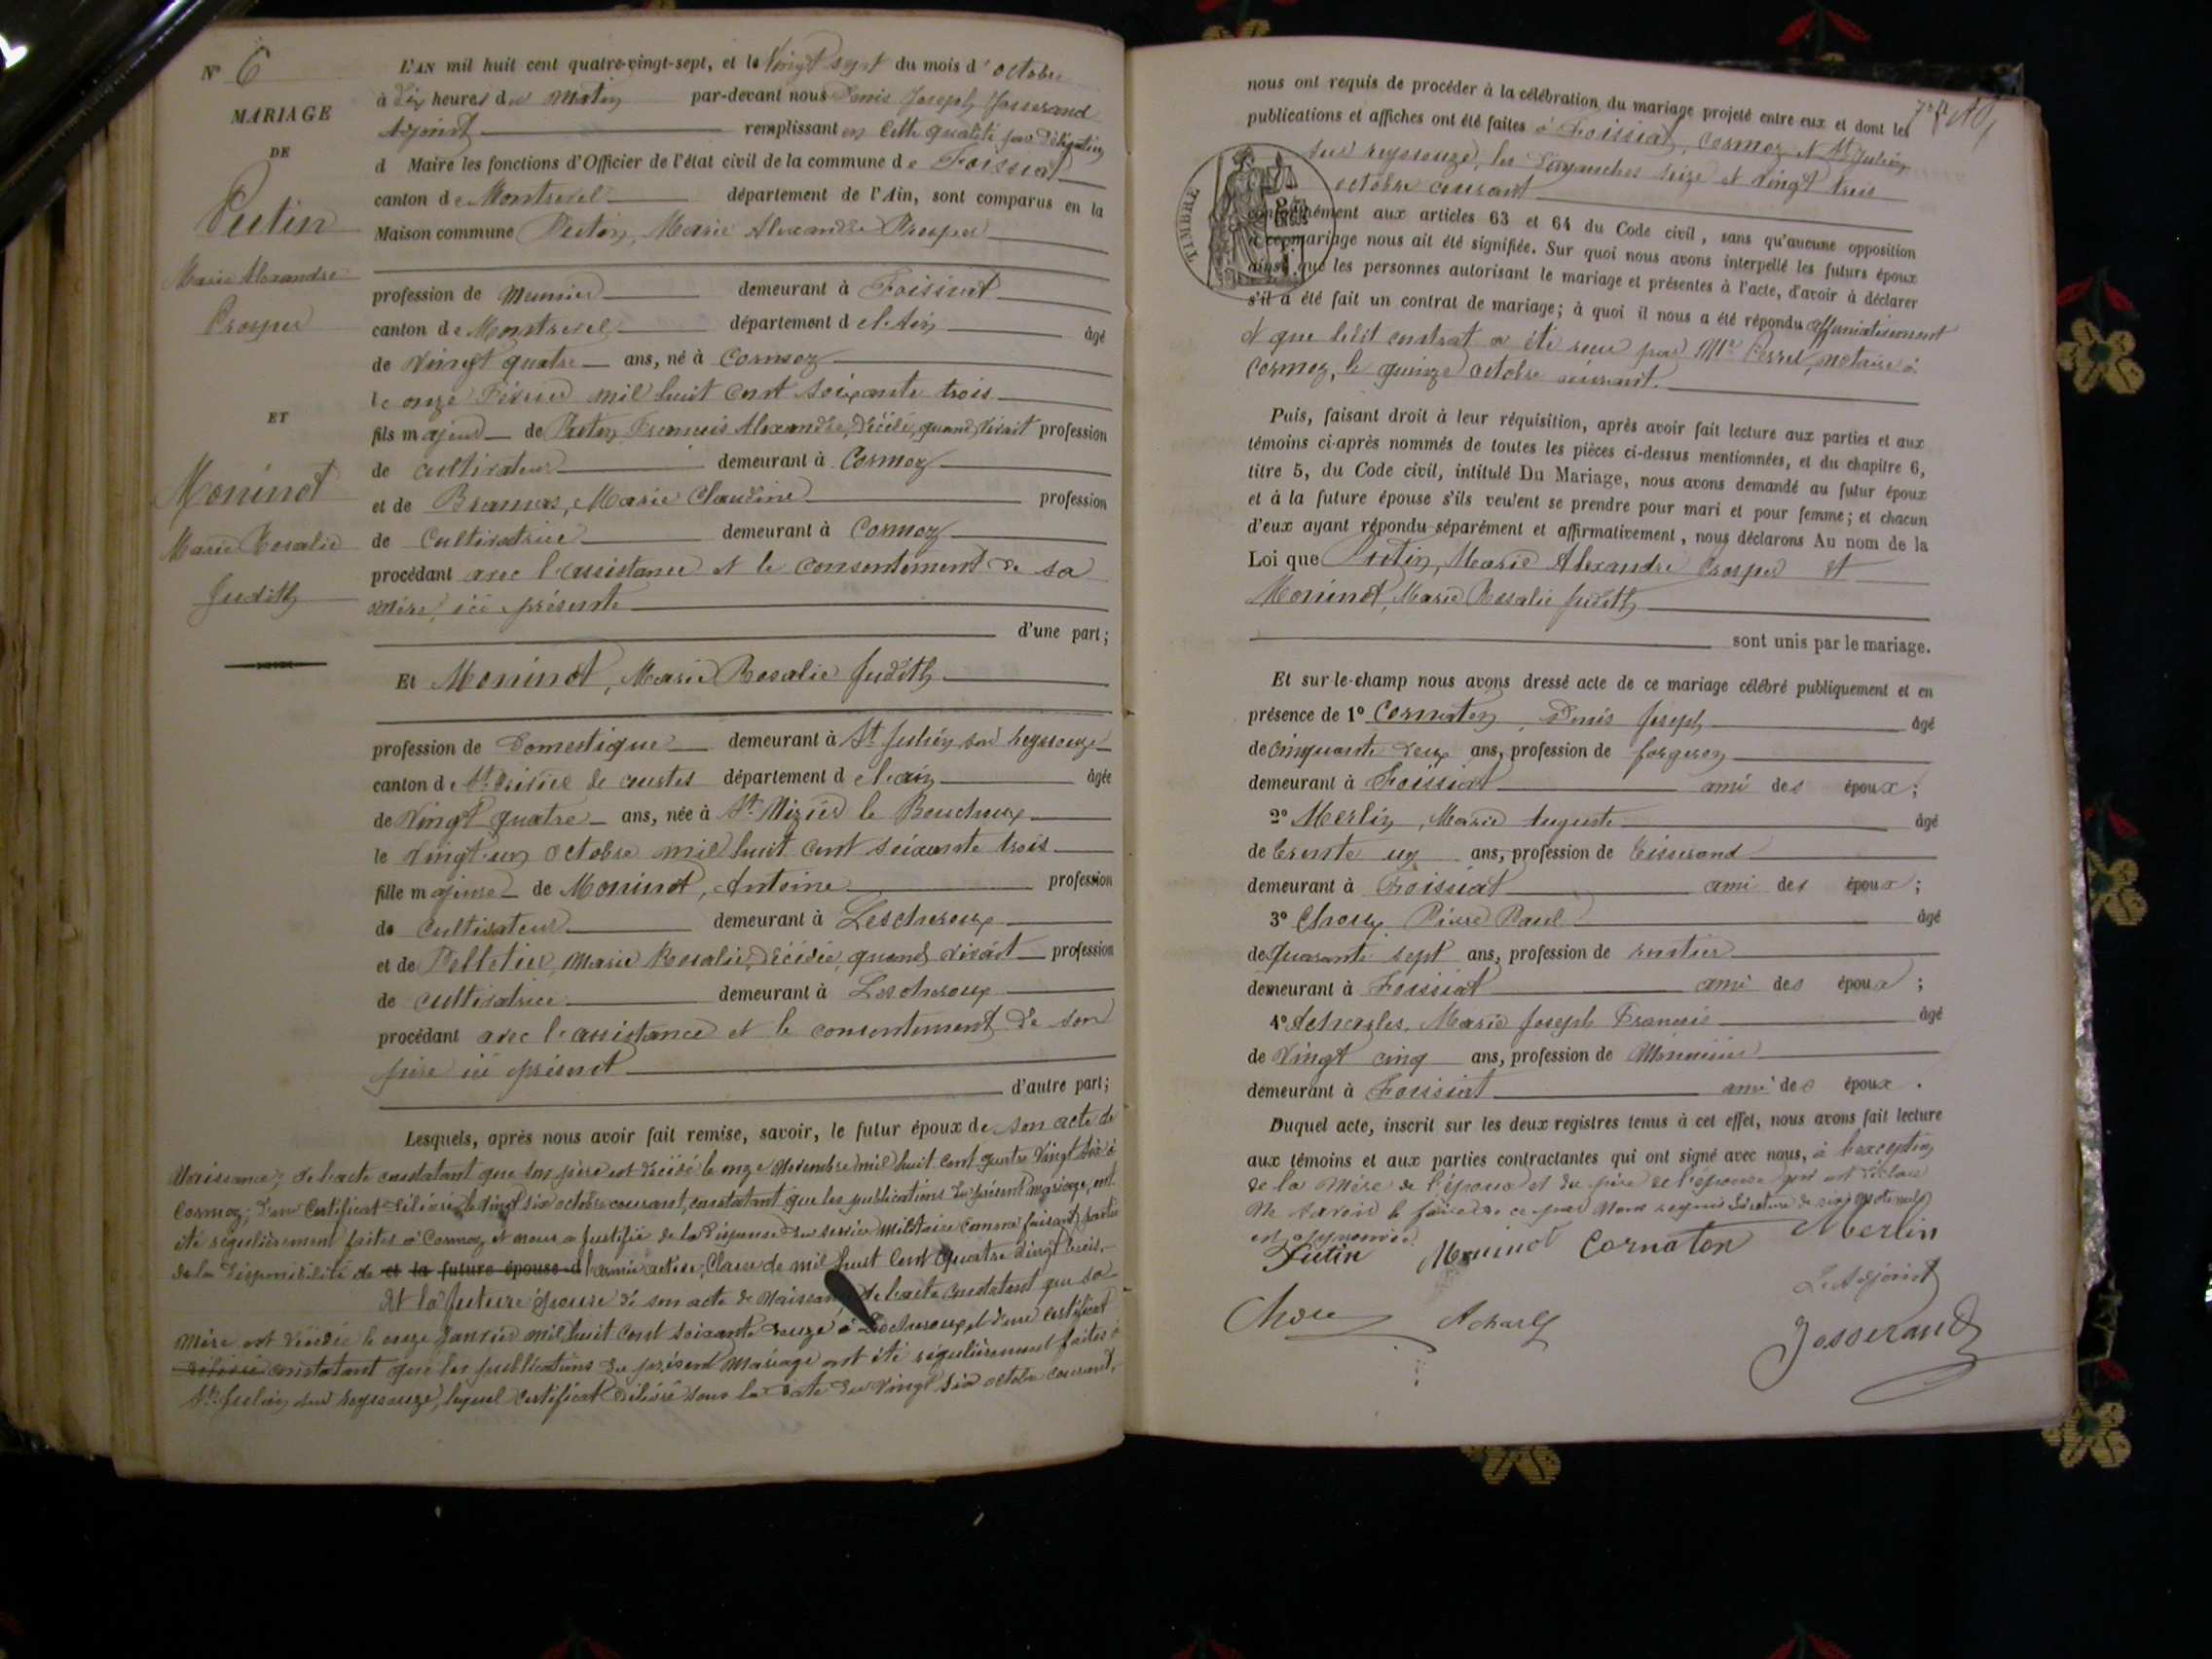 N° 6
MARIAGE
DE
Putin
Marie Alexandre
Prosper
ET
Moninot
Marie Rosalie
Judith
L'AN mil huit cent quatre-vingt-sept, et le Vingt sept du mois d'octobre
à dix heures du matin par-devant nous Denis Joseph Josserand
Adjoint remplissant en cette qualité par délégation
d Maire les fonctions d'Officier de l'état civil de la commune de Foissiat
canton de Montrevel département de l'Ain, sont comparus en la
Maison commune Putin, Marie Alexandre Prosper
profession de Meunier demeurant à Foissiat
canton de Montrevel département de l'Ain âgé
de Vingt quatre ans, né à Cormoz
le onze Février mil huit cent soixante trois
fils majeur de Putin François Alexandre, décédé, quand vivait profession
de cultivateur demeurant à Cormoz
et de Marie Claudine profession
de Cultivatrice demeurant à Cormoz
procédant avec l'assistance et le consentement de sa
mère, ici présente
d'une part;
Et Moninot, Marie Rosalie Judith
profession de Domestique demeurant à St Julien sur reyssouze
canton de St trivier de courtes département de l'ain âgée
de Vingt quatre ans, née à St Nizier le Bouchoux
le vingt un octobre mil huit cent soixante trois
fille majeure de Moninot, Antoine profession
de Cultivateur demeurant à Lescheroux
et de Pelletier, Marie Rosalie, décédée, quand vivait profession
de cultivatrice demeurant à Lescheroux
procédant avec l'assistance et le consentement de son
père ici présent
d'autre part;
Lesquels, après nous avoir fait remise, savoir, le futur époux de son acte de
Naissance; de l'acte constatant que son père est décédé le onze Novembre mil huit cent quatre vingt six à
Cormoz; d'un Certificat délivré le vingt six octobre courant, constatant que les publications du présent mariage, ont
été régulièrement faites à Cormoz, et nous a justifié de la dispense du service militaire comme faisant partie
de la disponibilité de et la future épouse d l'armée active, Classe de mil huit cent quatre vingt trois.
Et la future épouse de son acte de Naissance, de l'acte constatant que sa
Mère est décédée le onze Janvier mil huit cent soixante douze à Lescheroux, et d'un certificat
délivré constatant que les publications du présent Mariage ont été régulièrement faites à
St Julien sur reyssouze, lequel Certificat délivré sous la date du vingt six octobre courant.
nous ont requis de procéder à la célébration du mariage projeté entre eux et dont les
publications et affiches ont été faites à Foissiat, Cormoz et St Julien
sur reyssouze, les dimanches seize et vingt trois
octobre courant
TIMBRE
conformément aux articles 63 et 64 du Code civil, sans qu'aucune opposition
à ce mariage nous ait été signifiée. Sur quoi nous avons interpellé les futurs époux
ainsi que les personnes autorisant le mariage et présentes à l'acte, d'avoir à déclarer
s'il a été fait un contrat de mariage; à quoi il nous a été répondu affirmativement
et que ledit contrat a été reçu par Me Perret, notaire à
Cormoz, le quinze octobre courant.
Puis, faisant droit à leur réquisition, après avoir fait lecture aux parties et aux
témoins ci-après nommés de toutes les pièces ci-dessus mentionnées, et du chapitre 6,
titre 5, du Code civil, intitulé Du Mariage, nous avons demandé au futur époux
et à la future épouse s'ils veulent se prendre pour mari et pour femme; et chacun
d'eux ayant répondu séparément et affirmativement, nous déclarons Au nom de la
Loi que Putin, Marie Alexandre Prosper et
Moninot, Marie Rosalie Judith
sont unis par le mariage.
Et sur-le-champ nous avons dressé acte de ce mariage célébré publiquement et en
présence de 1° Cornaton, Denis Joseph âgé
de cinquante deux ans, profession de forgeron
demeurant à Foissiat ami des époux;
2° Merlin, Marie Auguste âgé
de trente un ans, profession de Tisserand
demeurant à Foissiat ami des époux;
3° Choux Pierre Paul âgé
de quarante sept ans, profession de rentier
demeurant à Foissiat ami des époux;
4° Marie Joseph François âgé
de Vingt cinq ans, profession de
demeurant à Foissiat ami des époux.
Duquel acte, inscrit sur les deux registres tenus à cet effet, nous avons fait lecture
aux témoins et aux parties contractantes qui ont signé avec nous, à l'exception
de la Mère de l'époux et du père de l'épouse qui ont déclaré
Ne savoir le faire de ce par Nous requis
est approuvée.
Putin Moninot Cornaton Merlin
L'Adjoint
Choux Josserand